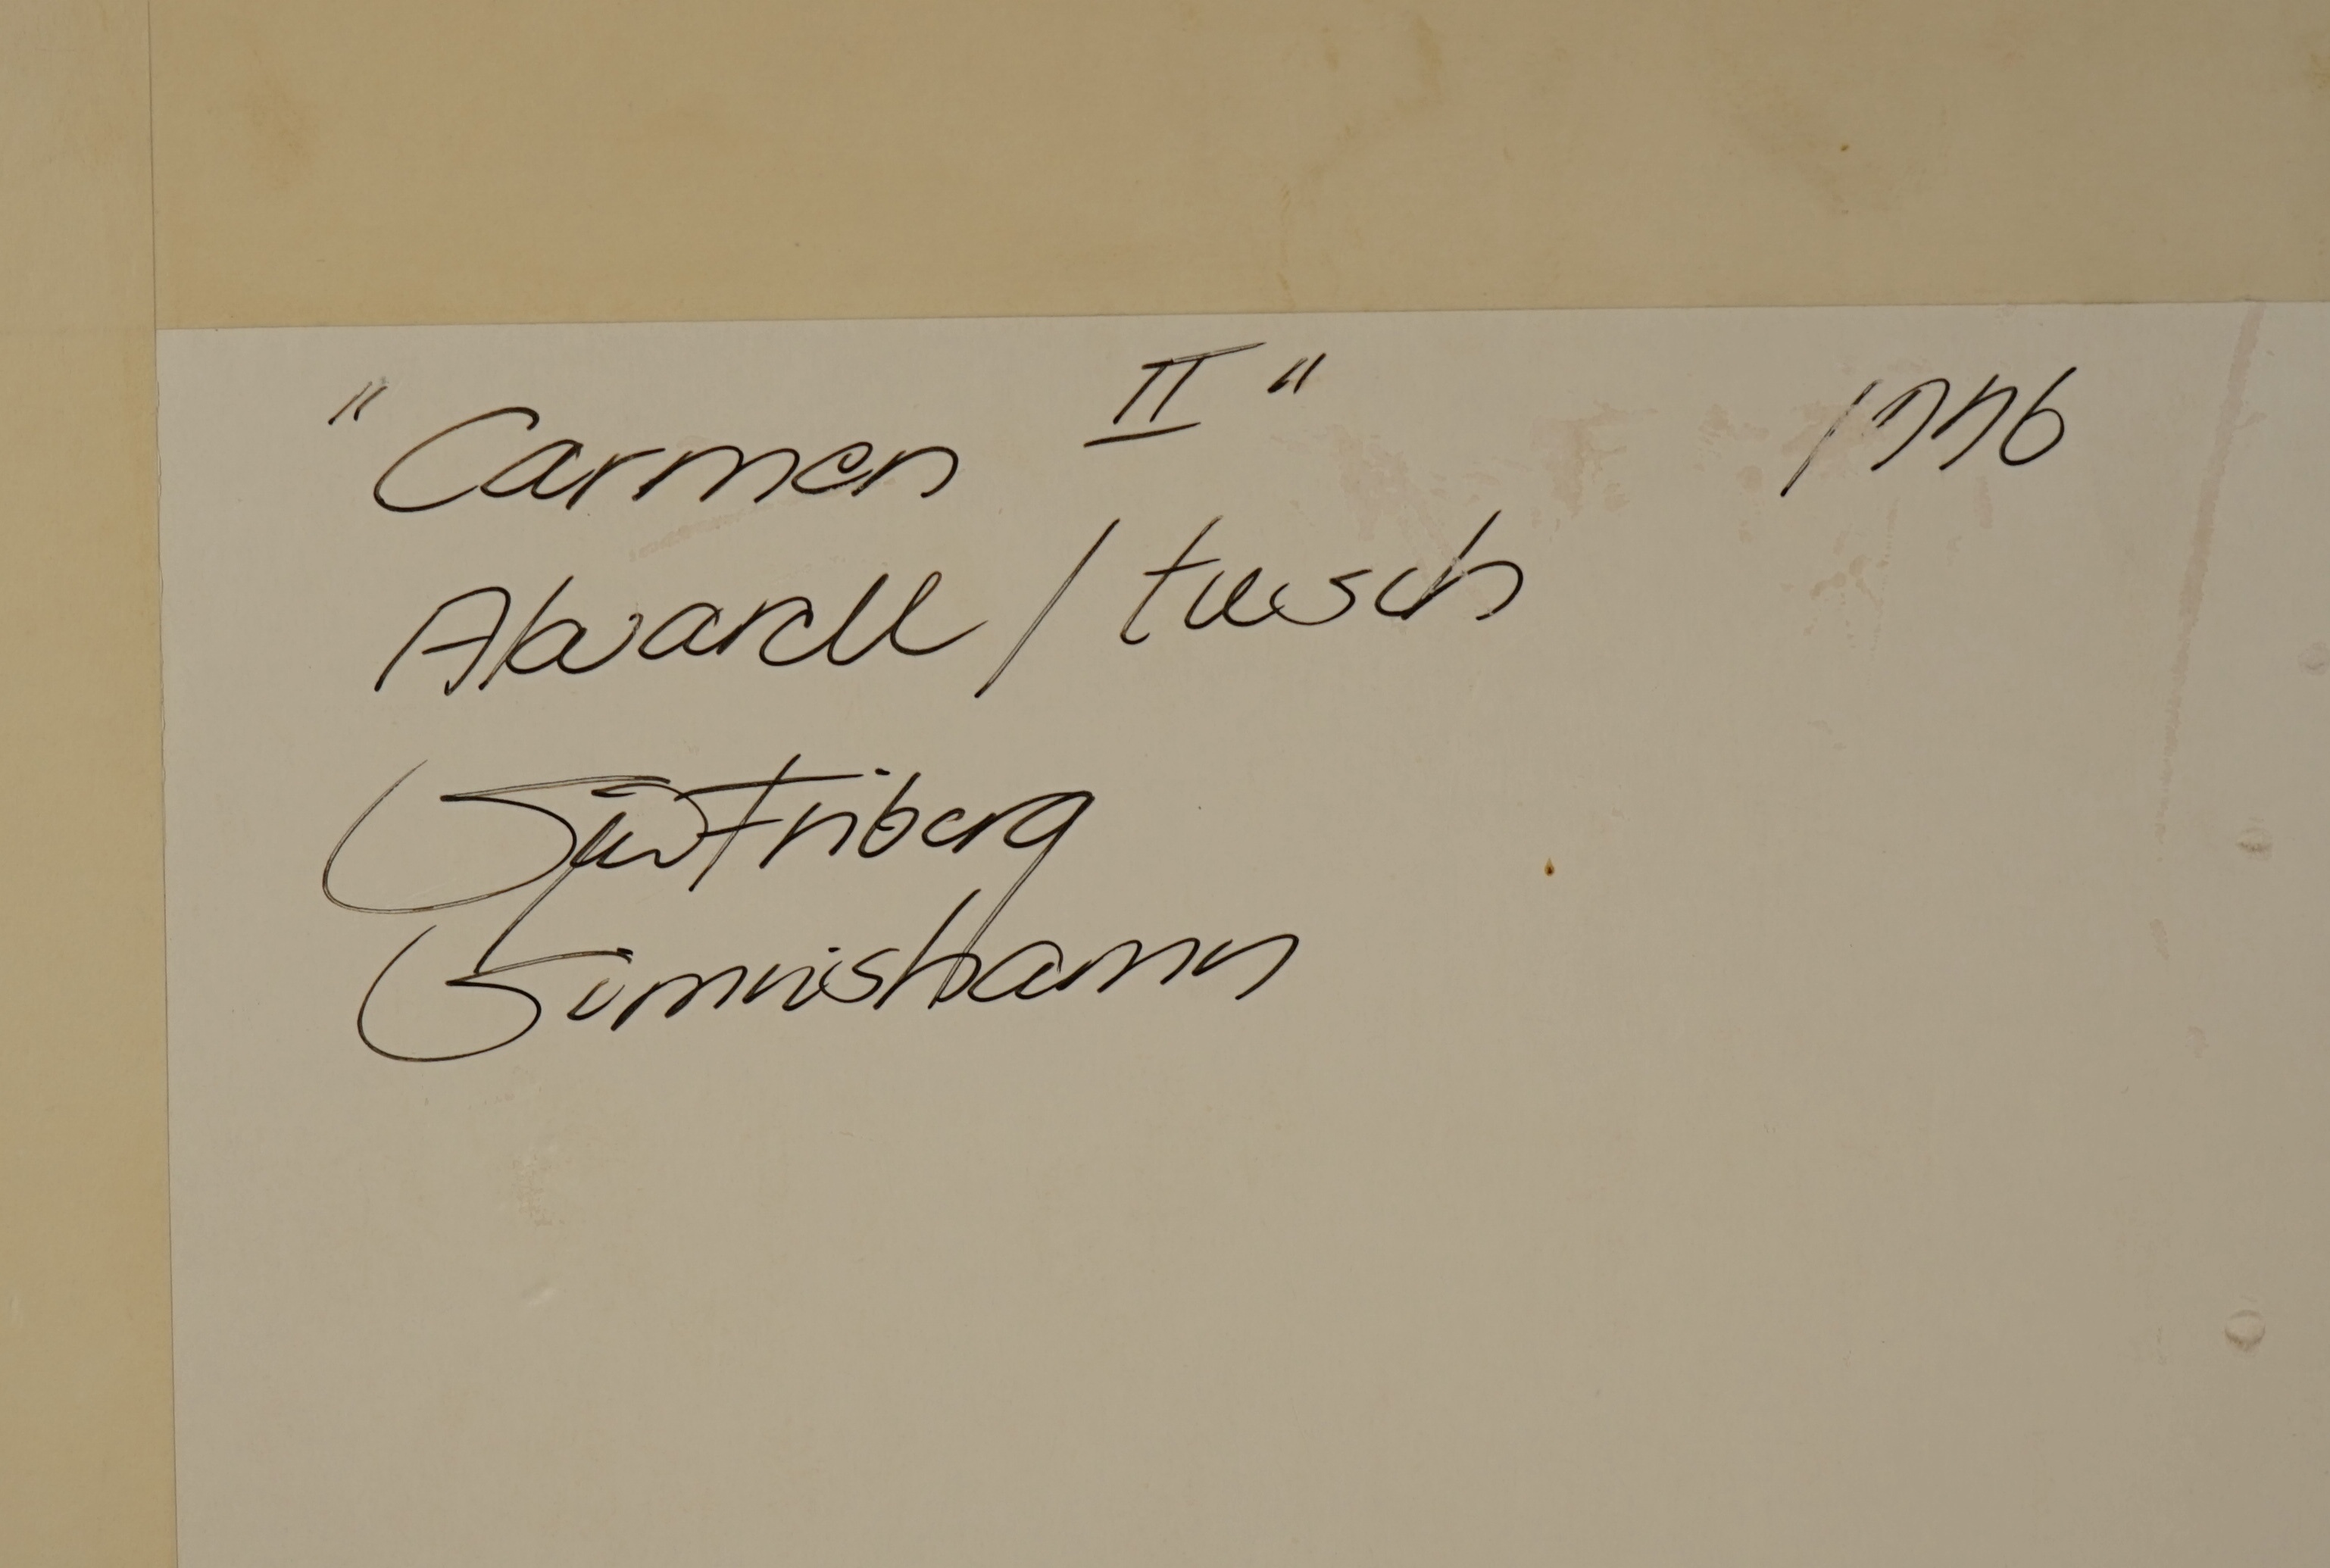 "Carmen II" 1996
Akvarell / tusch
Friberg
Simrishamn